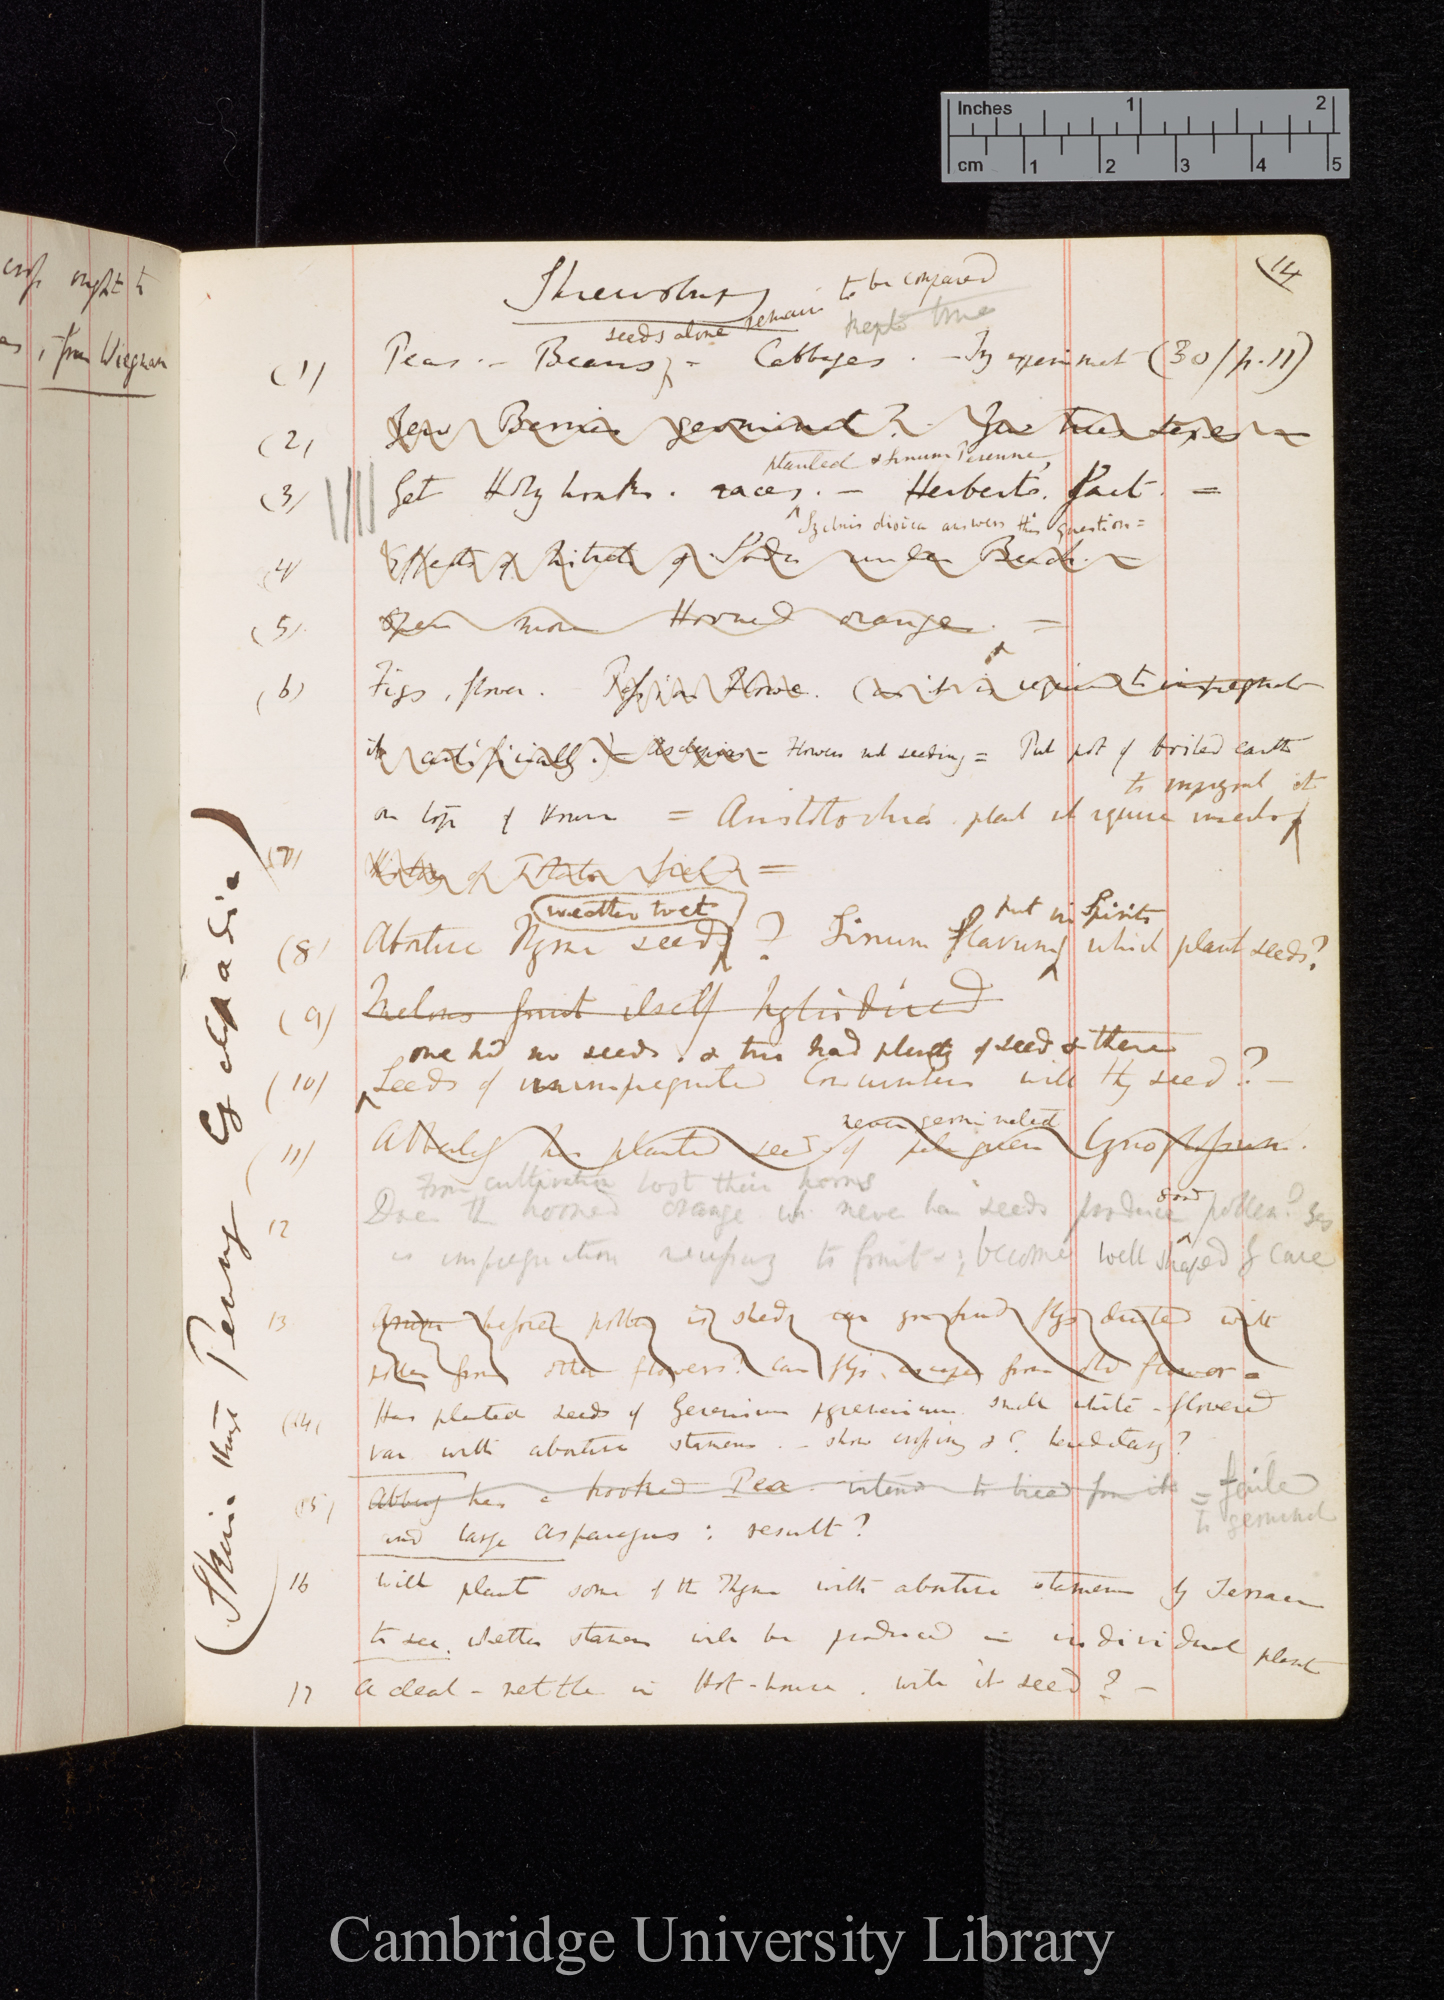 Inches 1 2
cm 1 2 3 4 5
14
crop ought to
, from Wiegman
Shrewsbury
to be compared
seeds alone remain kept true
(1) Peas. – Beans, – Cabbages. – My experiment (30/p. 11)
(2) Yew Berries germinate? Yew trees sexes –
planted & Linum Perenne
(3) Get Holyhocks. races. – Herberts. fact. =
Lychnis dioica answers this question =
(4) Effects of Nitrate of Soda under Beech. –
(5) Open more Horned orange. =
(6) Figs, flower. – Passion Flower. (as it is required to impregnate
it artificially.) – Asclepias – Flowers not seeding = Put pot of boiled earth
to impregnate it
on top of House = Aristolochia. plant it require insects
(7) History of Potato Seed =
weather wet
put in Spirits
(8) Abortive Thyme seeds ? Linum flavum, which plant seeds?
(9) Melons fruit itself hybridised
one had no seeds. & two had plenty of seed & there
(10) Seeds of unimpregnated Cucumbers will they seed? –
never germinated
(11) Abberley has planted seeds of Cynoglossum.
From cultivation lost their horns
good
12 Does the horned orange wh never has seeds produce pollen? yes
is impregnation necessary to fruit become well shaped
13 Arum before pollen is shed, can you find flys dusted with
pollen from other flowers? Can flys, escape from old flower =
(14) Has planted seeds of Geranium pyrenaicum small white-flowered
var with abortive stamens. – show crossing & hereditary?
(15) Abberley has a hooked Pea. intend to breed from it = failed
to germinate
and large Asparagus: result?
16 Will plant some of the Thyme with abortive stamens by Terrace
to see. whether stamens will be produced in individual plant
17 A dead-nettle in Hot-house. will it seed? –
Cambridge University Library